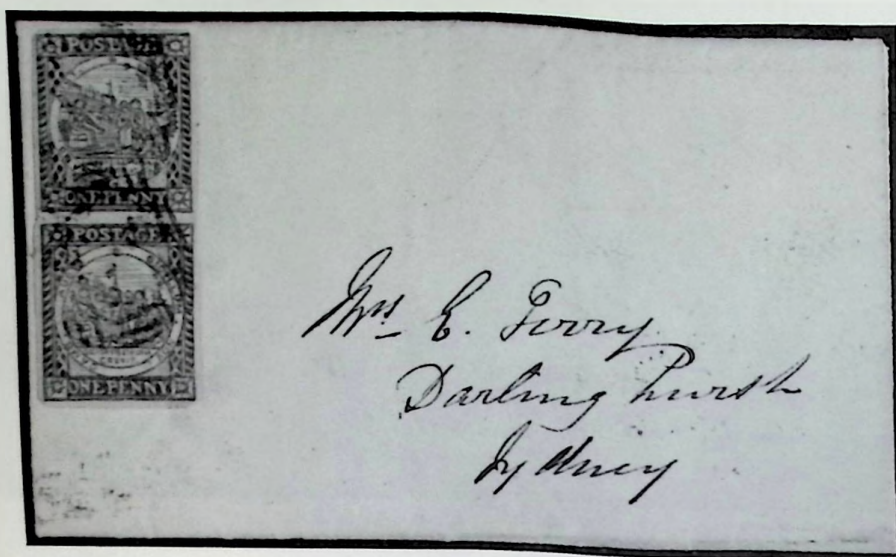 POSTAGE
ONE PENNY
POSTAGE
ONE PENNY
Mrs E. Terry
Darling hurst
Sydney